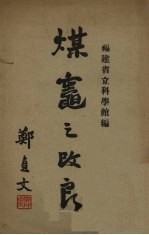 福建省立科學館編
煤竈之改良
鄭貞文